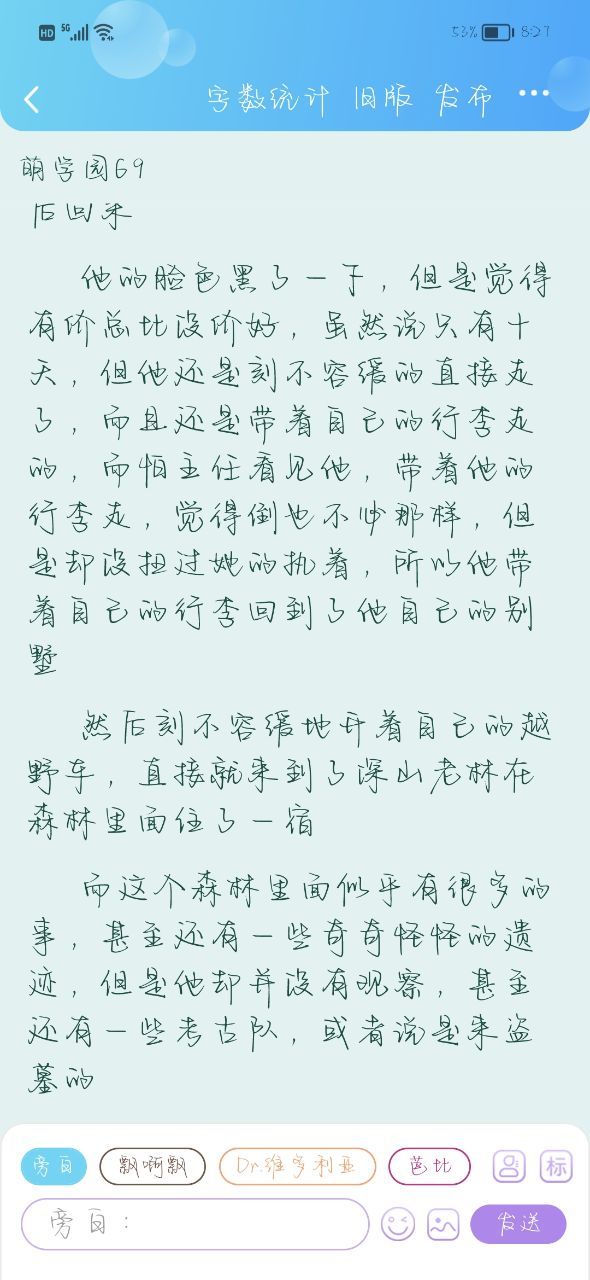 HD 5G 53% 8:27
字数统计 旧版 发布 ···
萌学园69
后回来
他的脸色黑了一下，但是觉得
有价总比没价好，虽然说只有十
天，但他还是刻不容缓的直接走
了，而且还是带着自己的行李走
的，而怕主任看见他，带着他的
行李走，觉得倒也不必那样，但
是却没扭过她的执着，所以他带
着自己的行李回到了他自己的别
墅
然后刻不容缓地开着自己的越
野车，直接就来到了深山老林在
森林里面住了一宿
而这个森林里面似乎有很多的
事，甚至还有一些奇奇怪怪的遗
迹，但是他却并没有观察，甚至
还有一些考古队，或者说是来盗
墓的
旁白 飘啊飘 Dr.维多利亚 芭比 标
旁白： 发送